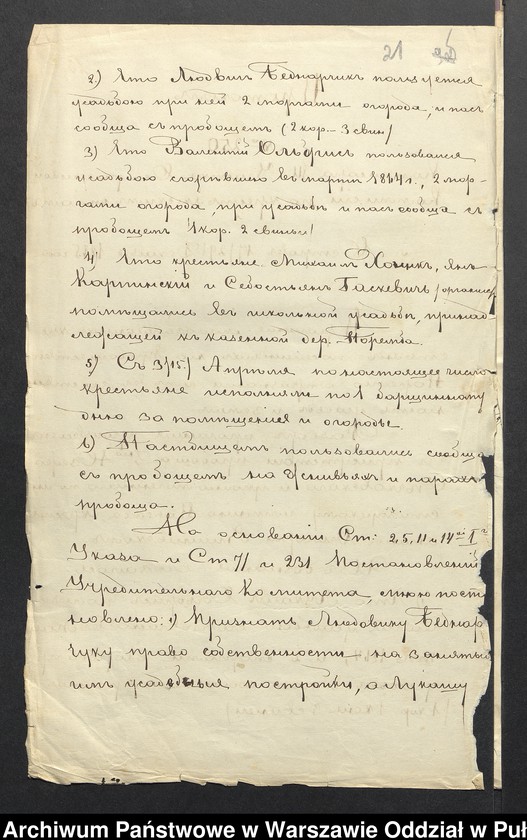 21
2.) Что Людвигъ Беднарчикъ пользуется
усадьбою при ней 2 моргами огорода, и паст
сообща съ пробощемъ (2 кор. 3 свин/
3) Что Валентій пользовался
усадьбою сгорѣвшею въ мартѣ 1864 г., 2 мор-
гами огорода, при усадьбѣ и паст сообща съ
пробощемъ 1 кор. 2 свиньи/
4) Что крестьяне Михаилъ Янъ
Карпинскій и Себастьянъ Гаскевичъ /органист
помѣщались въ школьной усадьбѣ, принад-
лежащей къ казенной дер. Порембa.
5) Съ 3/15/ Апрѣля по настоящее число
крестьяне исполняли по 1 барщинному
дню за помѣщенія и огороды.
6) Пастбищемъ пользовались сообща
съ пробощемъ на и парахъ
пробоща.
На основаніи Ст: 2, 5, 11 и 14 I
Указа и Ст 71 и 231 Постановленій
Учредительнаго Комитета, мною поста
новлено: 1) Признать Людовику Беднар
чуку право собственности на занятыя
имъ усадебныя постройки, а Лукашу
Archiwum Państwowe w Warszawie Oddział w Puł